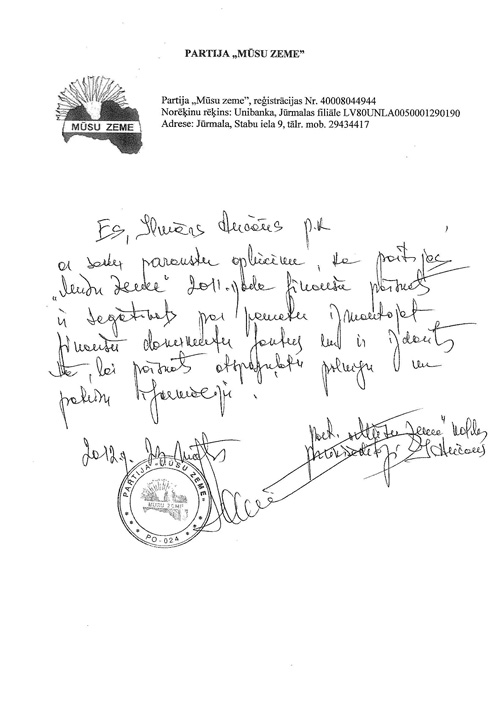 PARTIJA „MŪSU ZEME”
MŪSU ZEME
Partija „Mūsu zeme”, reģistrācijas Nr. 40008044944
Norēķinu rēķins: Unibanka, Jūrmalas filiāle LV80UNLA0050001290190
Adrese: Jūrmala, Stabu iela 9, tālr. mob. 29434417
Es, Ilmārs Ančāns p.k
ar savu parakstu apliecinu, ka partijas
„Mūsu zeme” 2011. gada finanšu pārskats
ir sagatavots par pamatu izmantojot
finanšu dokumentu un ir izdarīts
tā, lai pārskats atspoguļotu pilnīgu un
patiesu informāciju.
2012.g. marts
part. „Mūsu zeme” valdes
priekšsēdētājs I. Ančāns
PARTIJA „MŪSU ZEME”
MŪSU ZEME
PO-024